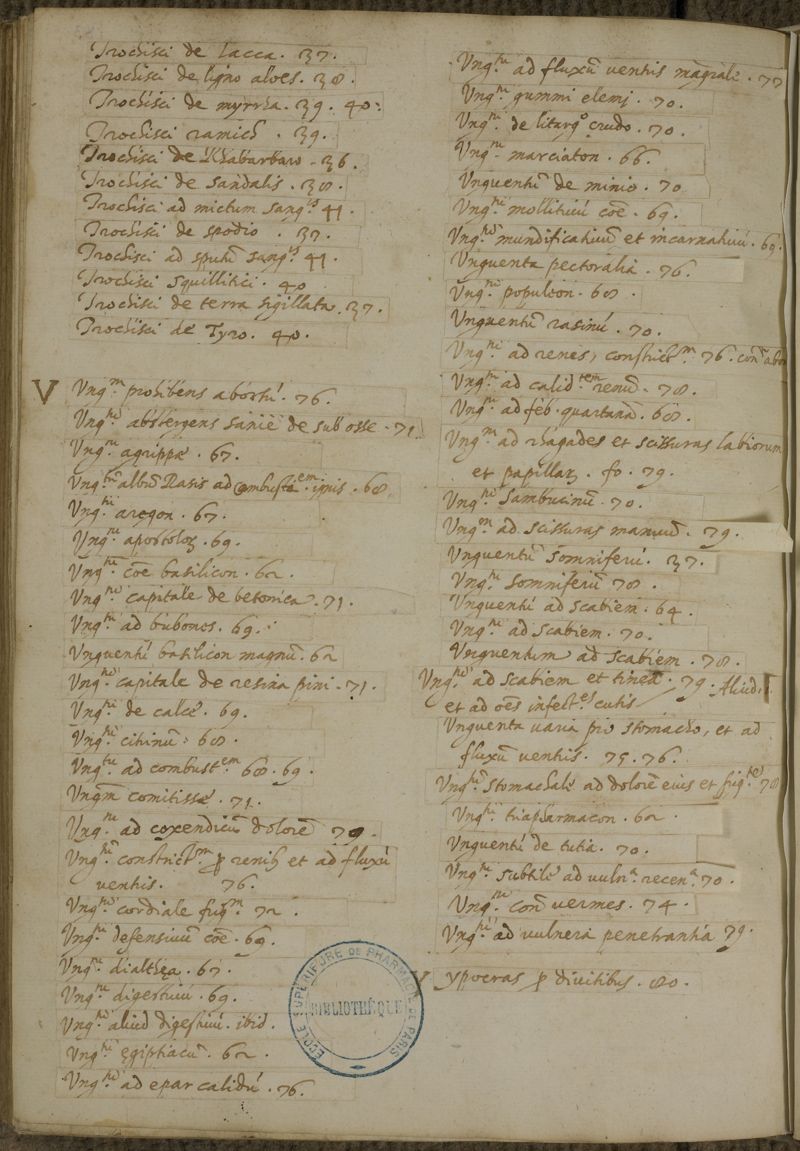 Trochisci de lacca. 37.
Trochisci de ligno aloes. 38.
Trochisci de myrrha. 39. 40.
Trochisci ramich. 39.
Trochisci de Rhabarbaro. 36.
Trochisci de sandalis. 38.
Trochisci ad mictum sang.s 41.
Trochisci de spodio. 37.
Trochisci ad sputũ sang.s 41.
Trochisci squillitici. 40
Trochisci de terra sigillata. 37.
Trochisci de Tyro. 40.
V
Vng.m prohibens abortũ. 76.
Vng.tũ abstergens saniẽ de sub osse. 71
Vng.tũ agrippæ. 67.
Vng.tũ albũ Rasis ad combustẽm ignis. 68
Vng.tũ aregon. 67.
Vng.tũ apostoloꝝ. 69.
Vng.tũ cõe basilicon. 62.
Vng.tũ capitale de betonica. 71.
Vng.tũ ad bubones. 69.
Vnguentũ basilicon magnũ. 62
Vng.tũ capitale de resina pini. 71.
Vng.tũ de calce. 69.
Vng.tũ citrinũ. 68.
Vng.tũ ad combust.em 68. 69.
Vngm̃ comitissæ. 71.
Vng.tũ ad coxendicũ dolorẽ 79.
Vng.tũ constrict.m ꝓ renibꝫ et ad fluxũ
ventis. 76.
Vng.tũ cordiale frig.m 72.
Vng.tũ defensivũ cõe. 69.
Vng.tũ dialthea. 67.
Vng.tũ digestivũ. 69.
Vng.tũ aliud digestivũ. ibid.
Vng.tũ egiptiacũ. 62.
Vng.tũ ad epar calidũ. 76.
Vng.tũ ad fluxũ ventris magrale. 77
Vng.tũ gummi elemj. 70.
Vng.tũ de litarg.o crudo. 70.
Vng.tũ marciaton. 66.
Vnguentũ de minio. 70
Vng.tũ mollitivũ cõe. 69.
Vng.tũ mundificativũ et incarnativũ. 69.
Vnguenta pectoralia. 76.
Vng.tũ populeon. 68.
Vnguentũ rasinũ. 70.
Vng.tũ ad renes, constrict.m 76. con.a abor
Vng.m ad calid.tem renũ. 78.
Vng.tũ ad feb. quartanã. 68.
Vng.m ad rhagades et scissuras labiorum
et papillaꝝ. fo. 79.
Vng.tũ Sambucinũ. 70.
Vng.m ad scissuras manuũ. 79.
Vnguentũ somniferũ. 37.
Vng.tũ somniferũ 78.
Vnguentũ ad scabiem. 64.
Vng.tũ ad scabiem. 70.
Vnguentum ad scabiem. 78.
Vng.tũ ad scabiem et tineã. 79. Aliud,
et ad oẽs infect.es cutis
Vnguenta varia pro stomacho, et ad
fluxũ ventris. 75. 76.
Vng.tũ stomachale ad dolorẽ eius et frig.te 78
Vng.tũ triapharmacon. 62.
Vnguentũ de tutia. 70.
Vng.tũ subtile ad vuln.a recen.a 70.
Vng.tũ con.a vermes. 74.
Vng.tũ ad vulnera penetrantia 79.
Y ypocras ꝓ divitibus. 80.
ECOLE SUPÉRIEURE DE PHARMACIE DE PARIS
BIBLIOTHÈQUE